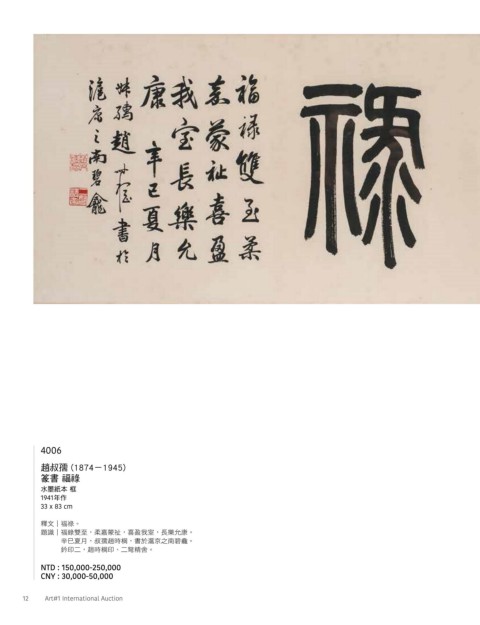 祿
福祿雙至柔
嘉蒙祉喜盈
我室長樂允
康 辛巳夏月
叔孺趙時棡書於
滬京之南碧龕
4006
趙叔孺 (1874－1945)
篆書 福祿
水墨紙本 框
1941年作
33 x 83 cm
釋文｜福祿。
題識｜福祿雙至，柔嘉蒙祉，喜盈我室，長樂允康。
辛巳夏月，叔孺趙時棡，書於滬京之南碧龕。
鈐印二、趙時棡印、二弩精舍。
NTD : 150,000-250,000
CNY : 30,000-50,000
12 Art#1 International Auction